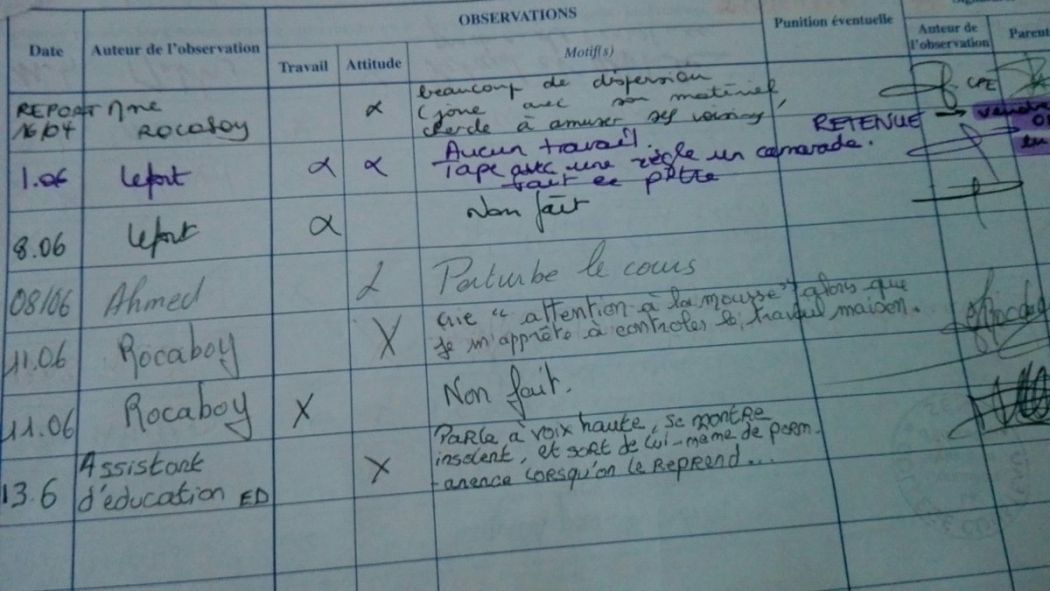 OBSERVATIONS
Punition éventuelle
Date
Auteur de l'observation
Travail
Attitude
Motif(s)
Auteur de l'observation
Parent
REPORT 16/04
Mme ROCABOY
α
beaucoup de dispersion
(joue avec son matériel
cherche à amuser ses voisins,
CPE
1.06
Lefort
α
α
Aucun travail.
Tape avec une règle un camarade.
fait le pitre
RETENUE →
8.06
Lefort
α
Non fait
08/06
Ahmed
Perturbe le cours
11.06
Rocaboy
X
crie "attention à la mousse" alors que
je m'apprête à contrôler le travail maison.
11.06
Rocaboy
X
Non fait.
13.6
Assistant
d'éducation ED
X
Parle à voix haute, se montre
insolent, et sort de lui-même de perm-
-anence lorsqu'on le reprend...